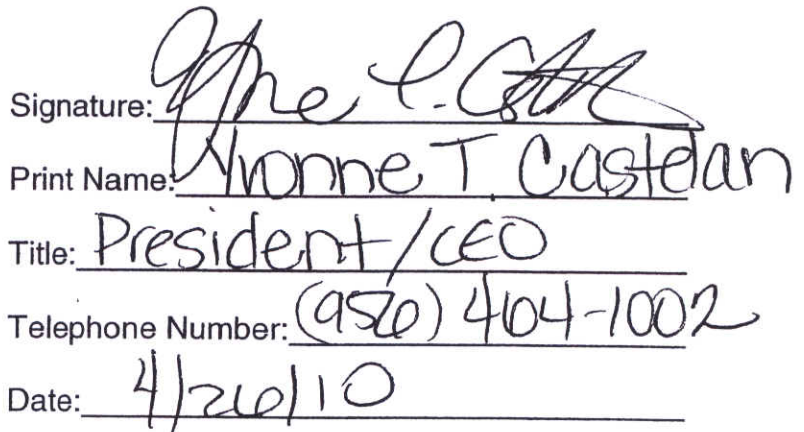 Signature: Yvonne T. Castelan
Print Name: Yvonne T. Castelan
Title: President/CEO
Telephone Number: (956) 464-1002
Date: 4/26/10